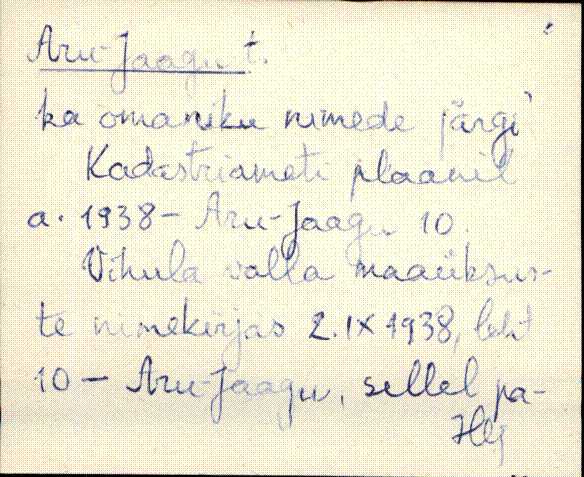 Aru-Jaagu t.
ka omaniku nimede järgi
Kadastriameti plaanil
a. 1938 - Aru-Jaagu 10.
Vihula valla maaüksus-
te nimekirjas 2.IX 1938, leht
10 - Aru-Jaagu, sellel pa-